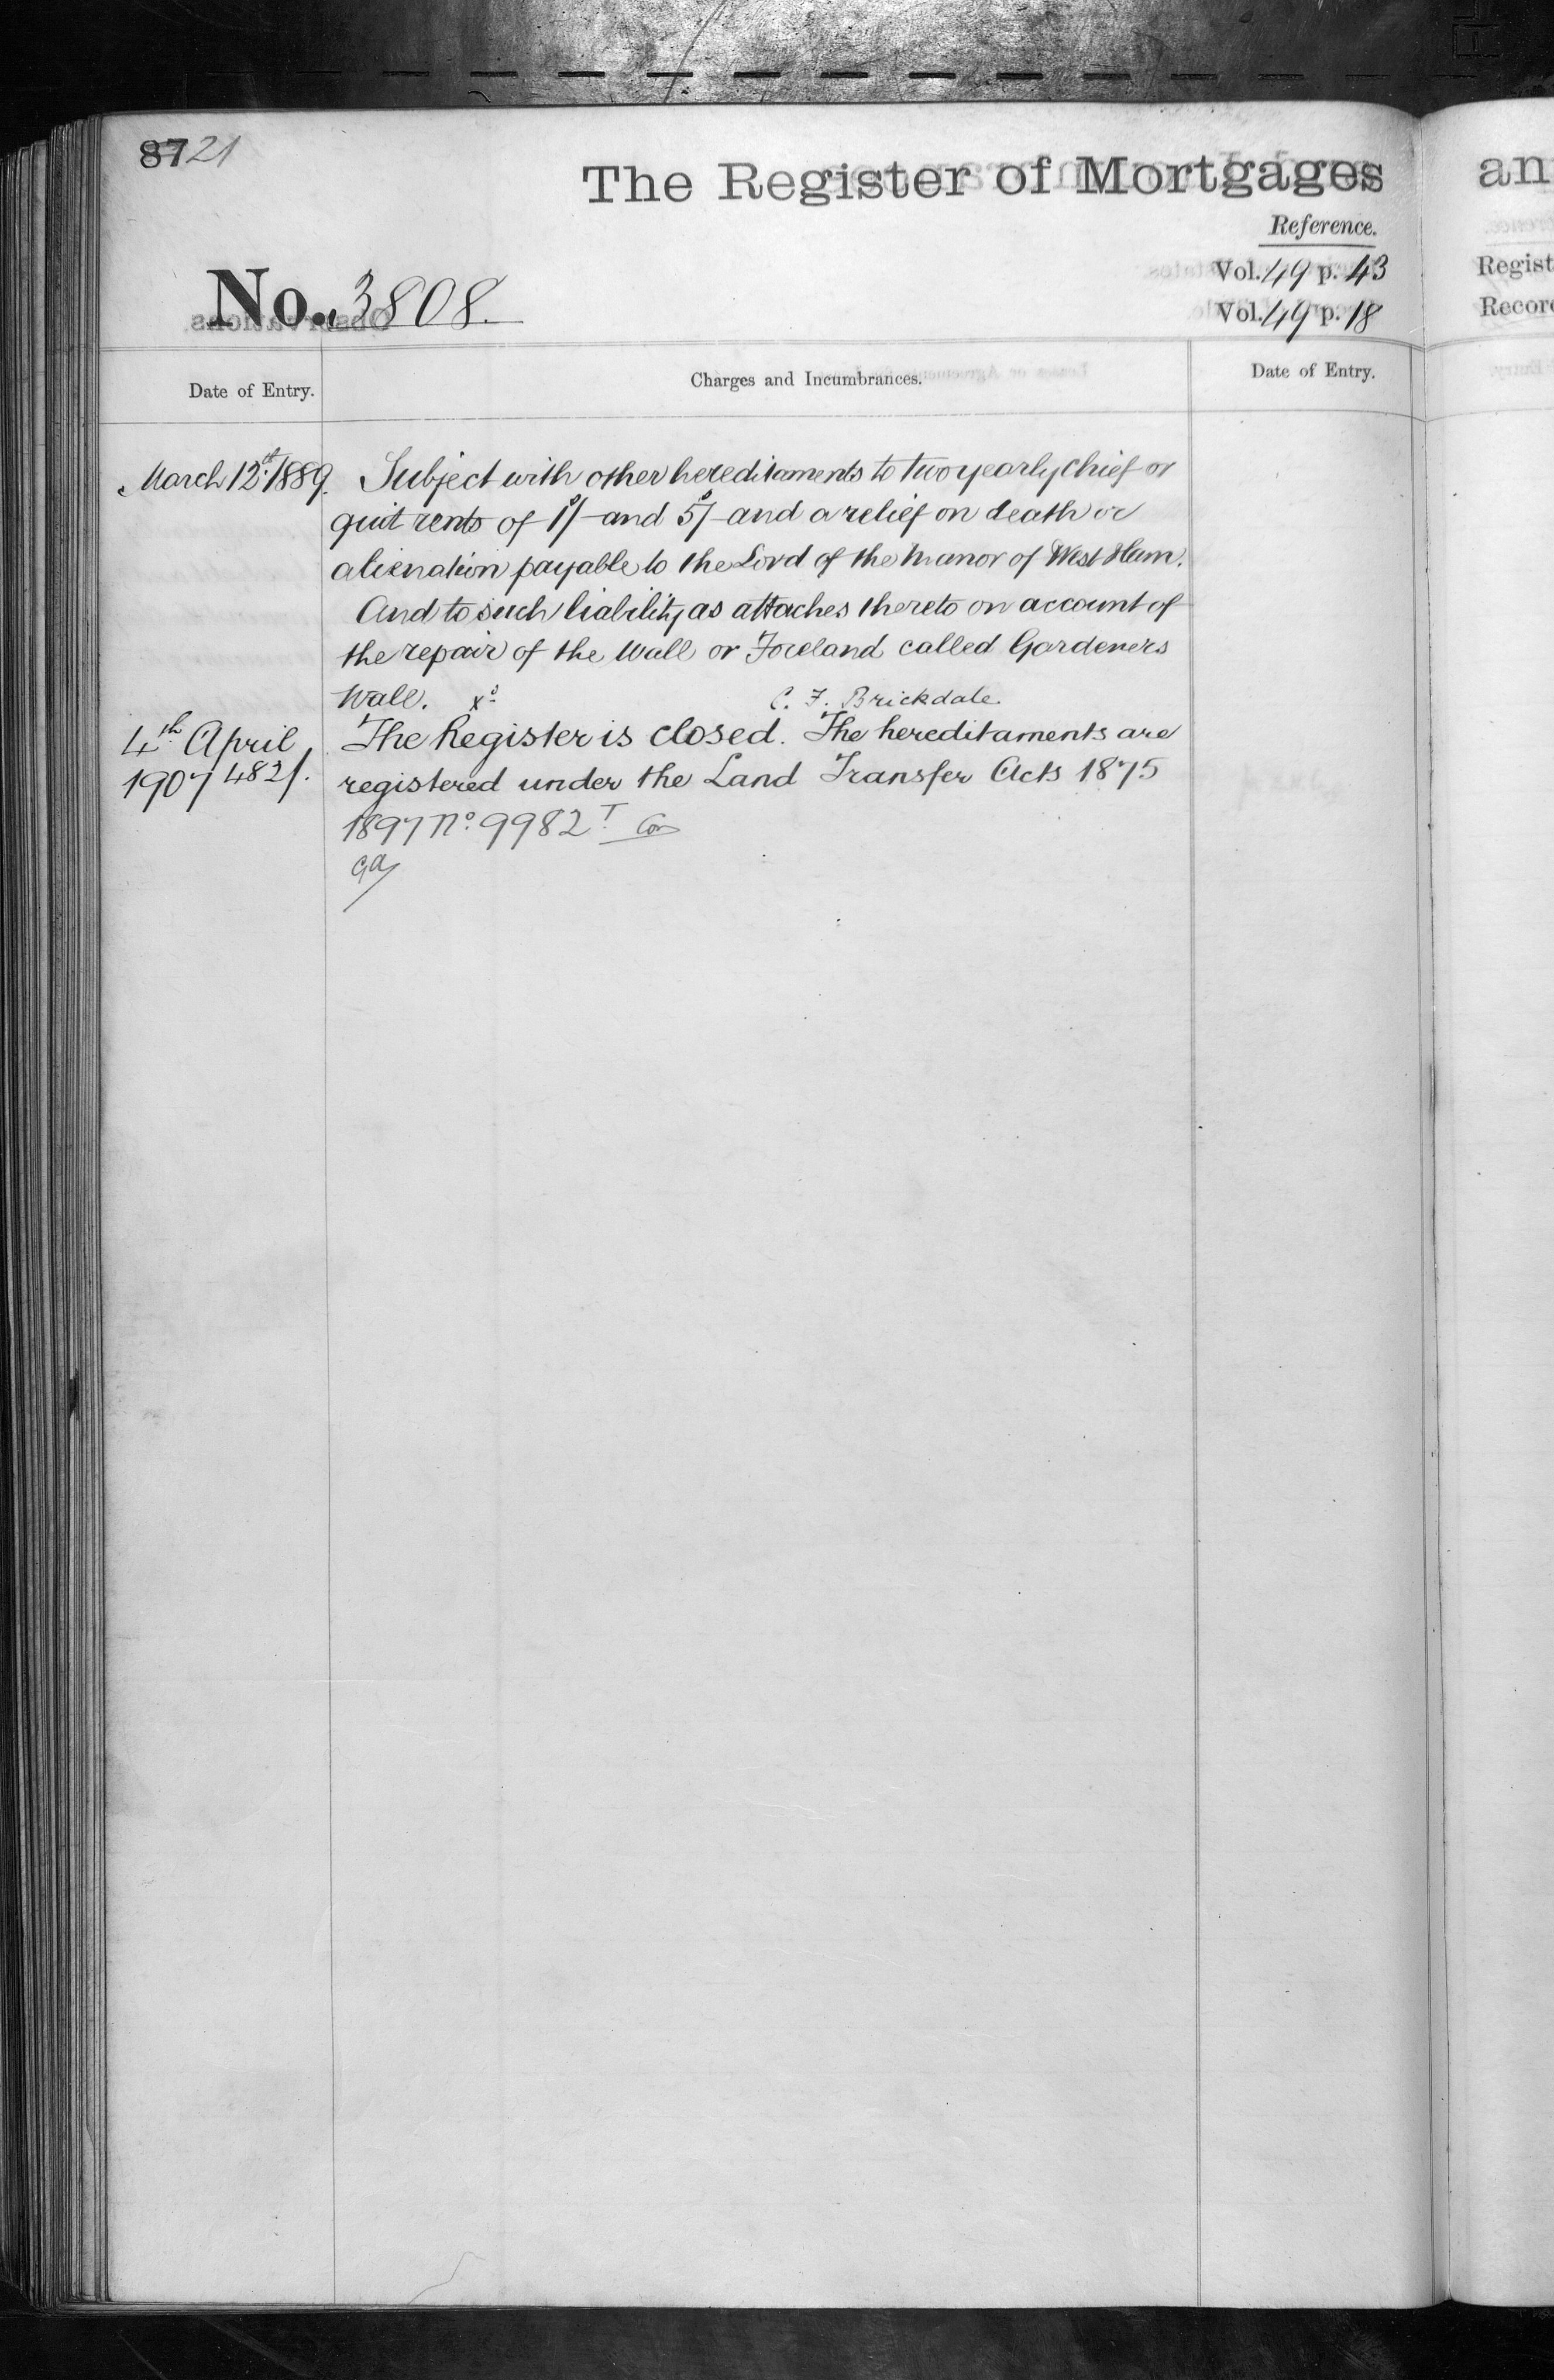 87 21
The Register of Mortgages
Reference.
Vol. 49 p. 43
Vol. 49 p. 18
No. 3808.
Date of Entry.
Charges and Incumbrances.
Date of Entry.
March 12th 1889.
Subject with other hereditaments to two yearly chief or
quit rents of 1s/- and 5s/- and a relief on death or
alienation payable to the Lord of the Manor of West Ham.
And to such liability as attaches thereto on account of
the repair of the Wall or Foreland called Gardeners
Wall.
C. F. Brickdale.
4th April
1907 4821.
The Register is closed. The hereditaments are
registered under the Land Transfer Acts 1875
1897 No. 9982 T.
an
Regist
Record